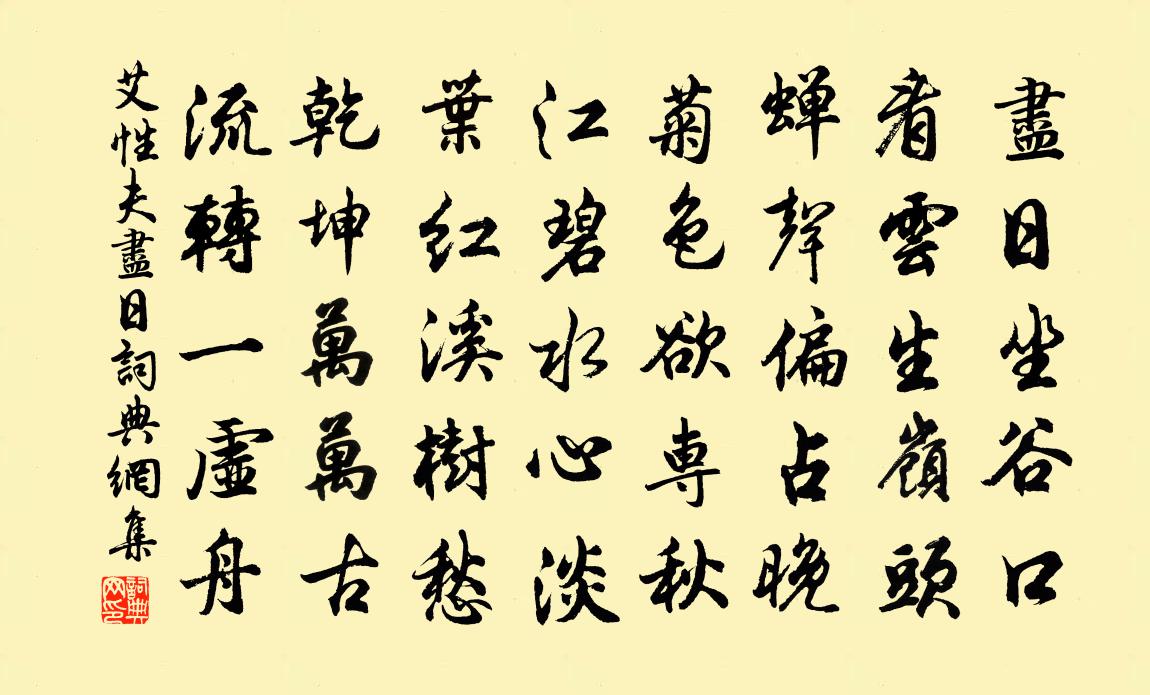 盡日坐谷口
看雲生嶺頭
蟬聲偏占晚
菊色欲專秋
江碧水心淡
葉紅溪樹愁
乾坤萬萬古
流轉一虛舟
艾性夫盡日詞典網集
詞典
网印